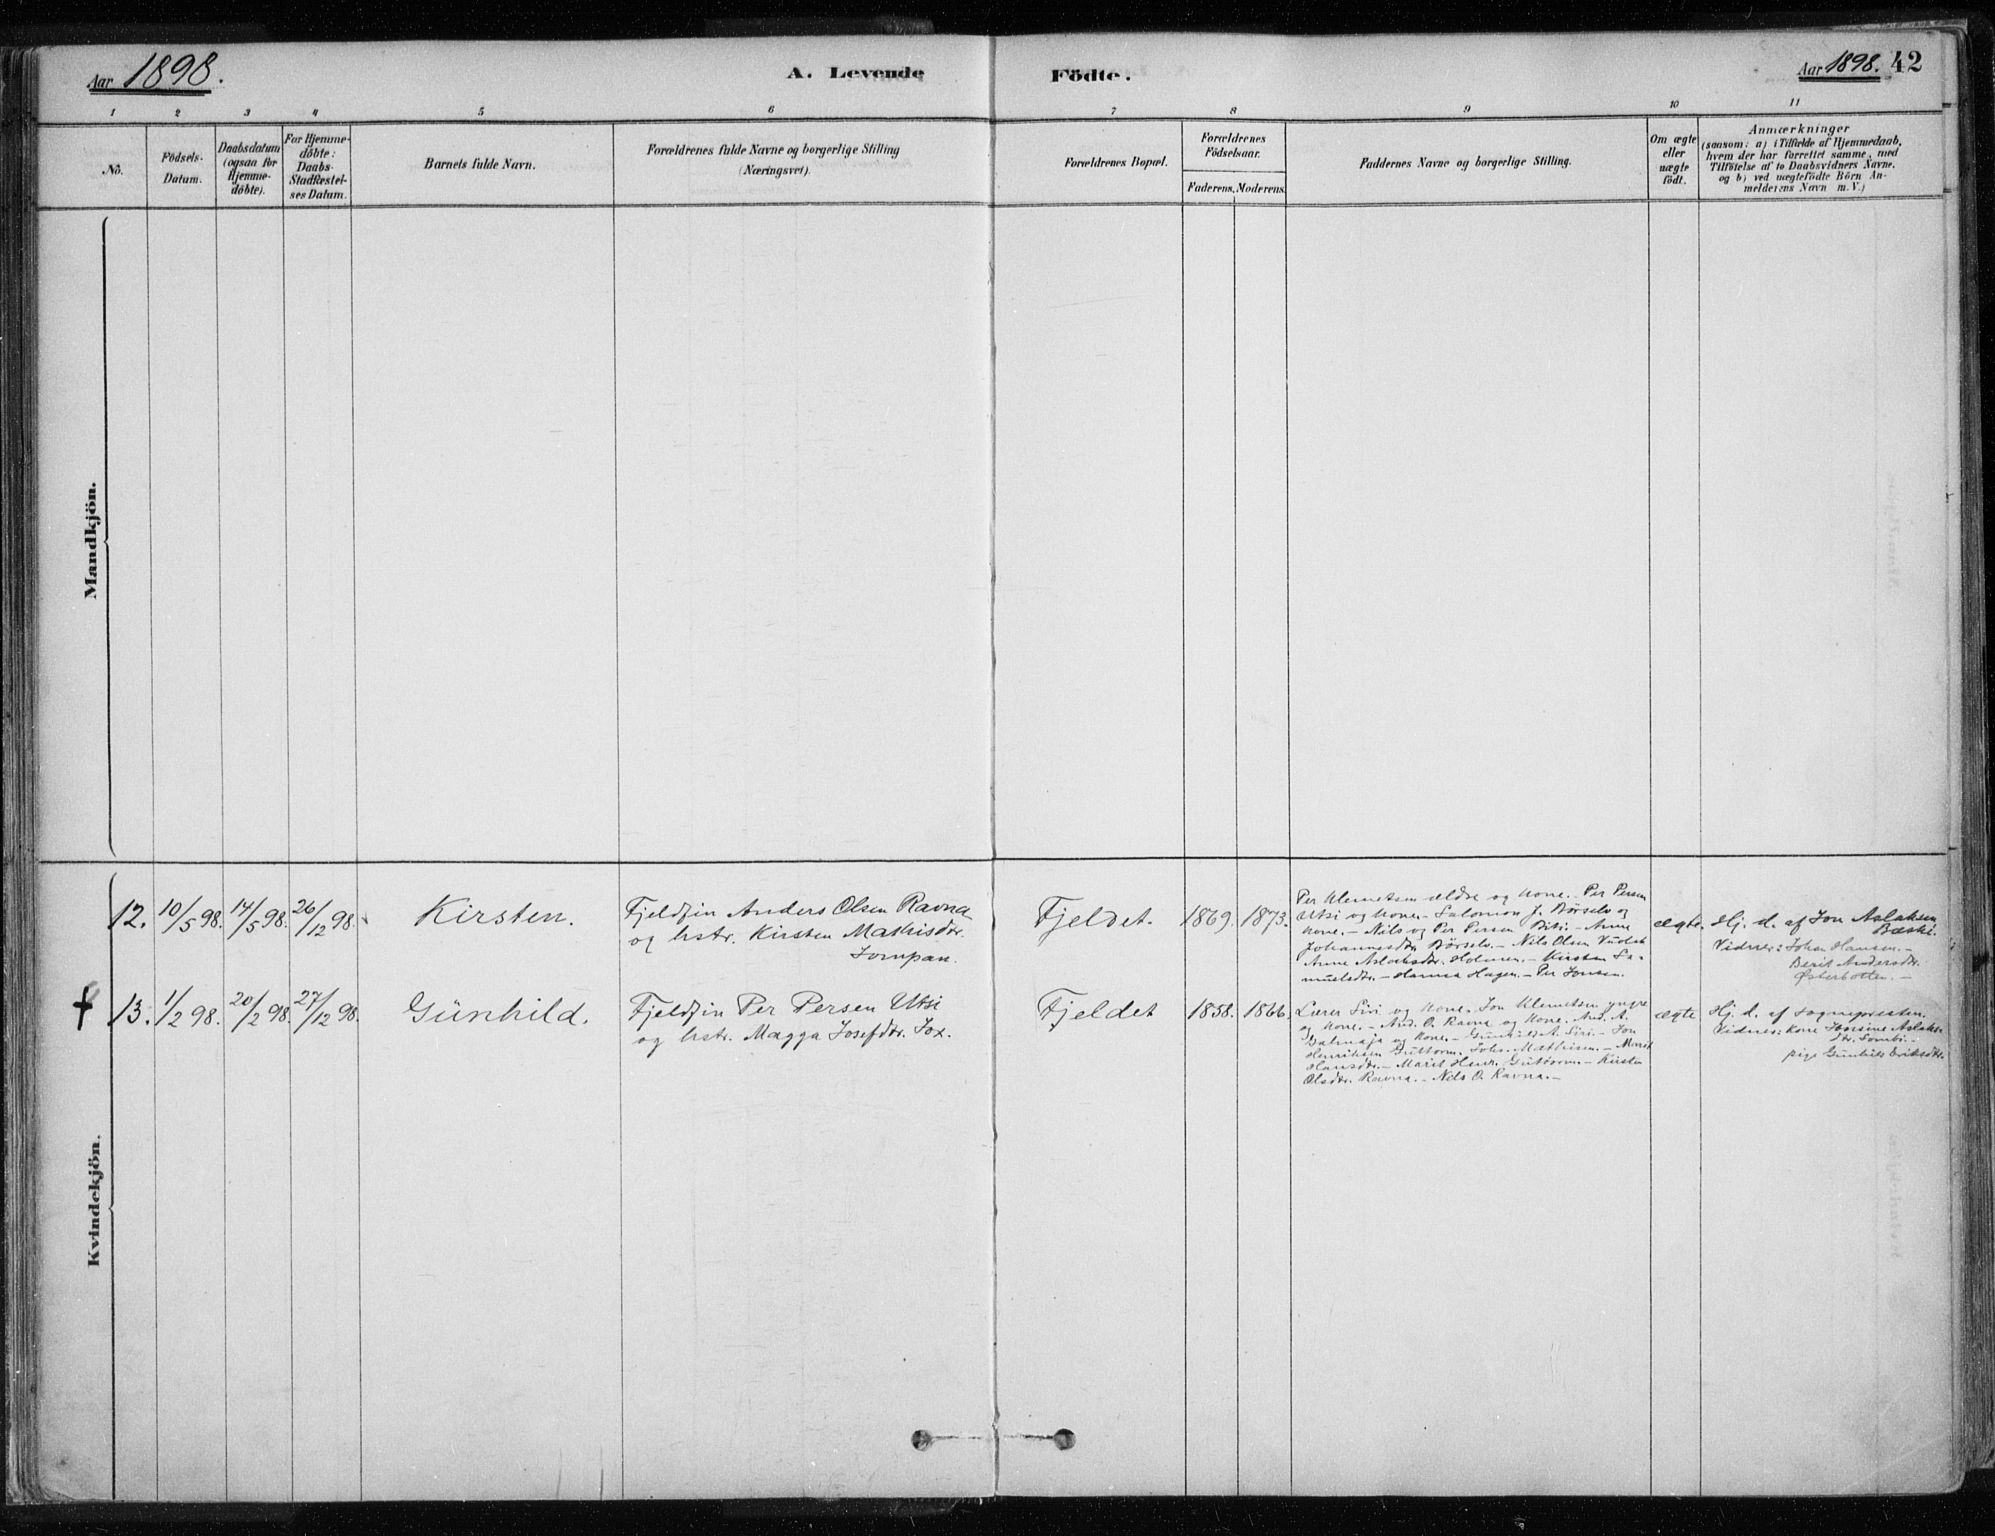 Aar 1898.
A. Levende
Födte.
Aar 1898. 42
1 2 3 4 5 6 7 8 9 10 11
No.
Födsels-
Datum.
Daabsdatum
(ogsaa for
Hjemme-
döbte).
For Hjemme-
döbte:
Daabs-
Stadfæstel-
ses Datum.
Barnets fulde Navn.
Forældrenes fulde Navne og borgerlige Stilling
(Næringsvei).
Forældrenes Bopæl.
Forældrenes
Födselsaar.
Faderens. Moderens.
Faddernes Navne og borgerlige Stilling.
Om ægte
eller
uægte
födt.
Anmærkninger
(saasom: a) i Tilfælde af Hjemmedaab,
hvem der har forrettet samme, med
Tilföielse af to Daabsvidners Navne,
og b) ved uægtefödte Börn An-
melderens Navn m. V.)
Mandkjön.
Kvindekjön.
12. 10/5 98. 14/5 98. 26/12 98.
Kirsten.
Fjeldfin Anders Olsen Ravna
og hstr. Kirsten Mathisdtr.
Fjeldet.
1869. 1873.
Per Klemetsen ældre og Kone. Per Persen
Utsi og Kone. - Salomon J. Børselv og
Kone. - Nils og Per Persen - Anne
Johannesdtr. Børselv. - Nils Olsen
Anne Aslaksdtr. Holmen. - Kirsten Sa-
muelsdtr. - Hanna Hagen. - Per Jonsen.
ægte.
Hj. d. af Jon Aslaksen
Bæski.
Vidner: Johan Hansen. -
Berit Andersdtr.
Østerbotten. -
† 13. 1/2 98. 20/2 98. 27/12 98.
Günhild.
Fjeldfin Per Persen Utsi
og hstr. Magga Josefdtr. Jox.
Fjeldet
1858. 1866.
Lærer Siri og Kone. Jon Klemetsen yngre
og Kone. - And. O. Ravna og Kone. And. A.
og Kone. - A. Siri. - Jon
Henriksen Guttorm. Johs. Mathisen. - Marit
Hansdtr. - Marit Henr. Guttorm. - Kirsten
Olsdtr. Ravna. - Nils O. Ravna. -
ægte
Hj. d. af Sognepresten.
Vidner: Kone Aslaks-
dtr. Sombi. -
pige Gunhild Eriksdtr.